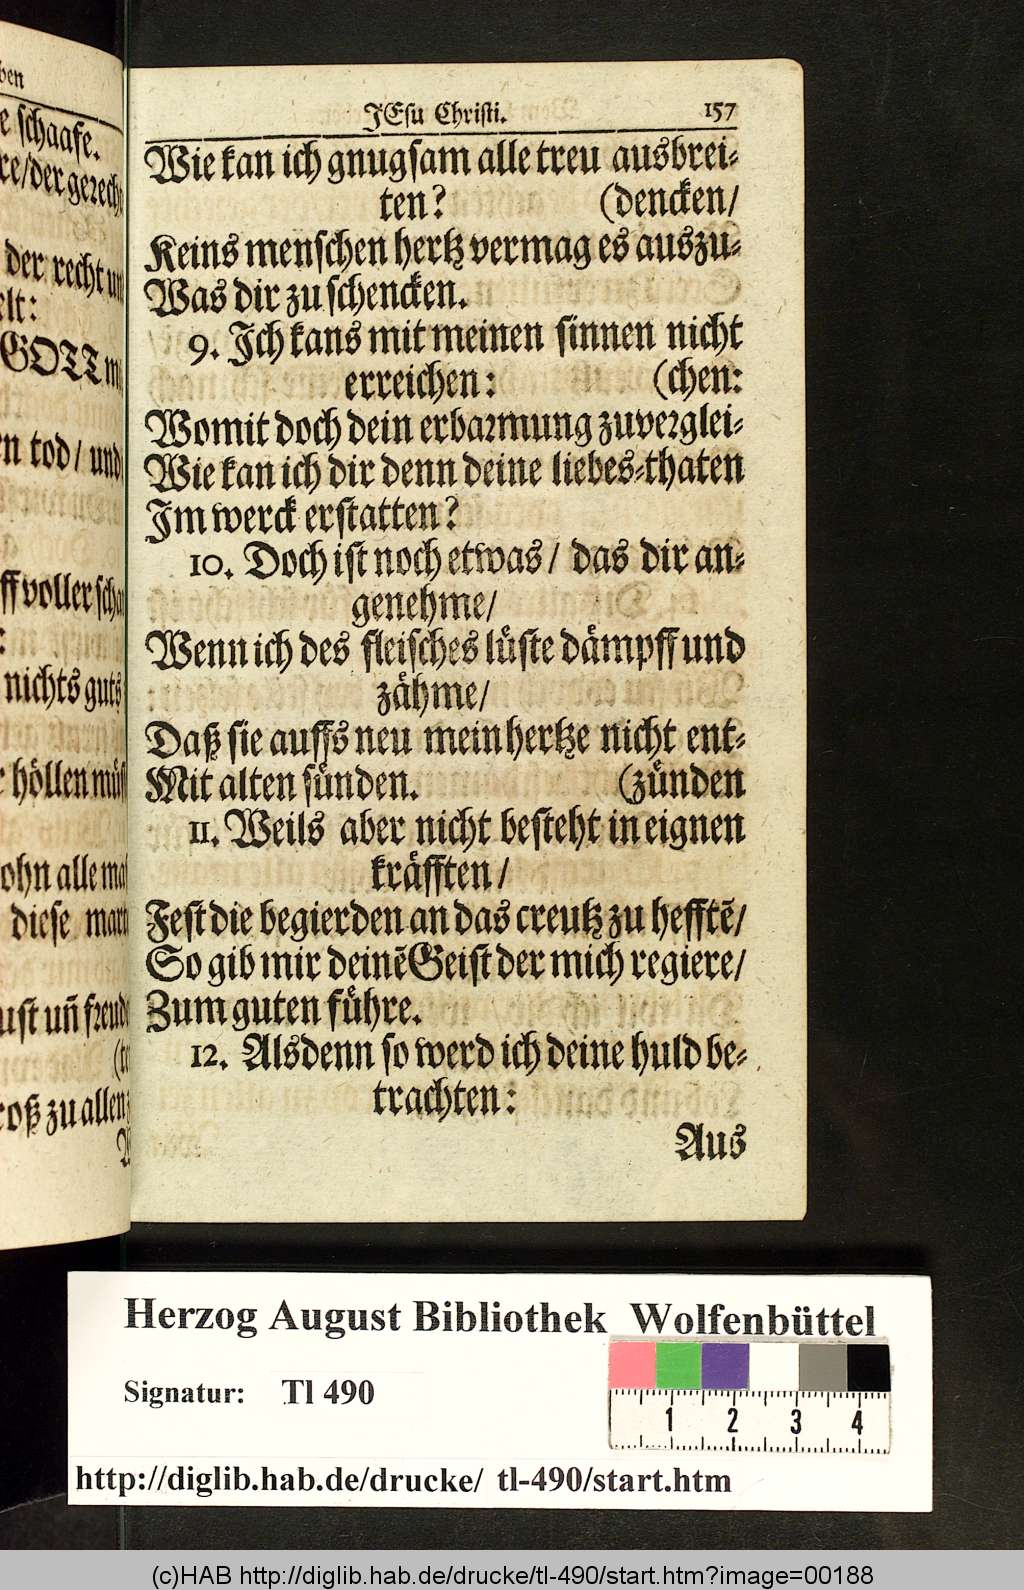 ben
e schaafe.
re/der gerech
der recht un
elt:
GOTT
en tod/ und
ff voller
nichts guts
höllen
ohn alle
diese mar
ust uñ freud
roß zu allen
JEsu Christi. 157
Wie kan ich gnugsam alle treu ausbrei-
ten? (dencken/
Keins menschen hertz vermag es auszu-
Was dir zu schencken.
9. Ich kans mit meinen sinnen nicht
erreichen: (chen:
Womit doch dein erbarmung zuverglei-
Wie kan ich dir denn deine liebes-thaten
Im werck erstatten?
10. Doch ist noch etwas/ das dir an-
genehme/
Wenn ich des fleisches lüste dämpff und
zähme/
Daß sie auffs neu mein hertze nicht ent-
Mit alten sünden. (zünden
11. Weils aber nicht besteht in eignen
kräfften/
Fest die begierden an das creutz zu hefftẽ/
So gib mir deinẽ Geist der mich regiere/
Zum guten führe.
12. Alsdenn so werd ich deine huld be-
trachten:
Aus
Herzog August Bibliothek Wolfenbüttel
Signatur: Tl 490
1 2 3 4
http://diglib.hab.de/drucke/ tl-490/start.htm
(c)HAB http://diglib.hab.de/drucke/tl-490/start.htm?image=00188